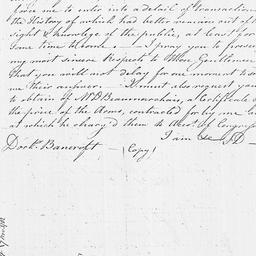 me to enter into a detail of transactions
the History of which had better remain out of the
sight & knowledge of the public, at least for
some time to come. — I pray you to present
my most sincere Respects to those Gentlemen
that you will not delay for one moment to send
me their answer. — I must also request you
to obtain of Mr Beaumarchais, a Certificate of
the price of the Arms, contracted for by me &
at which he charg'd them to Acct. of Congress
I am &c SD —
Doctr. Bancroft — (Copy)